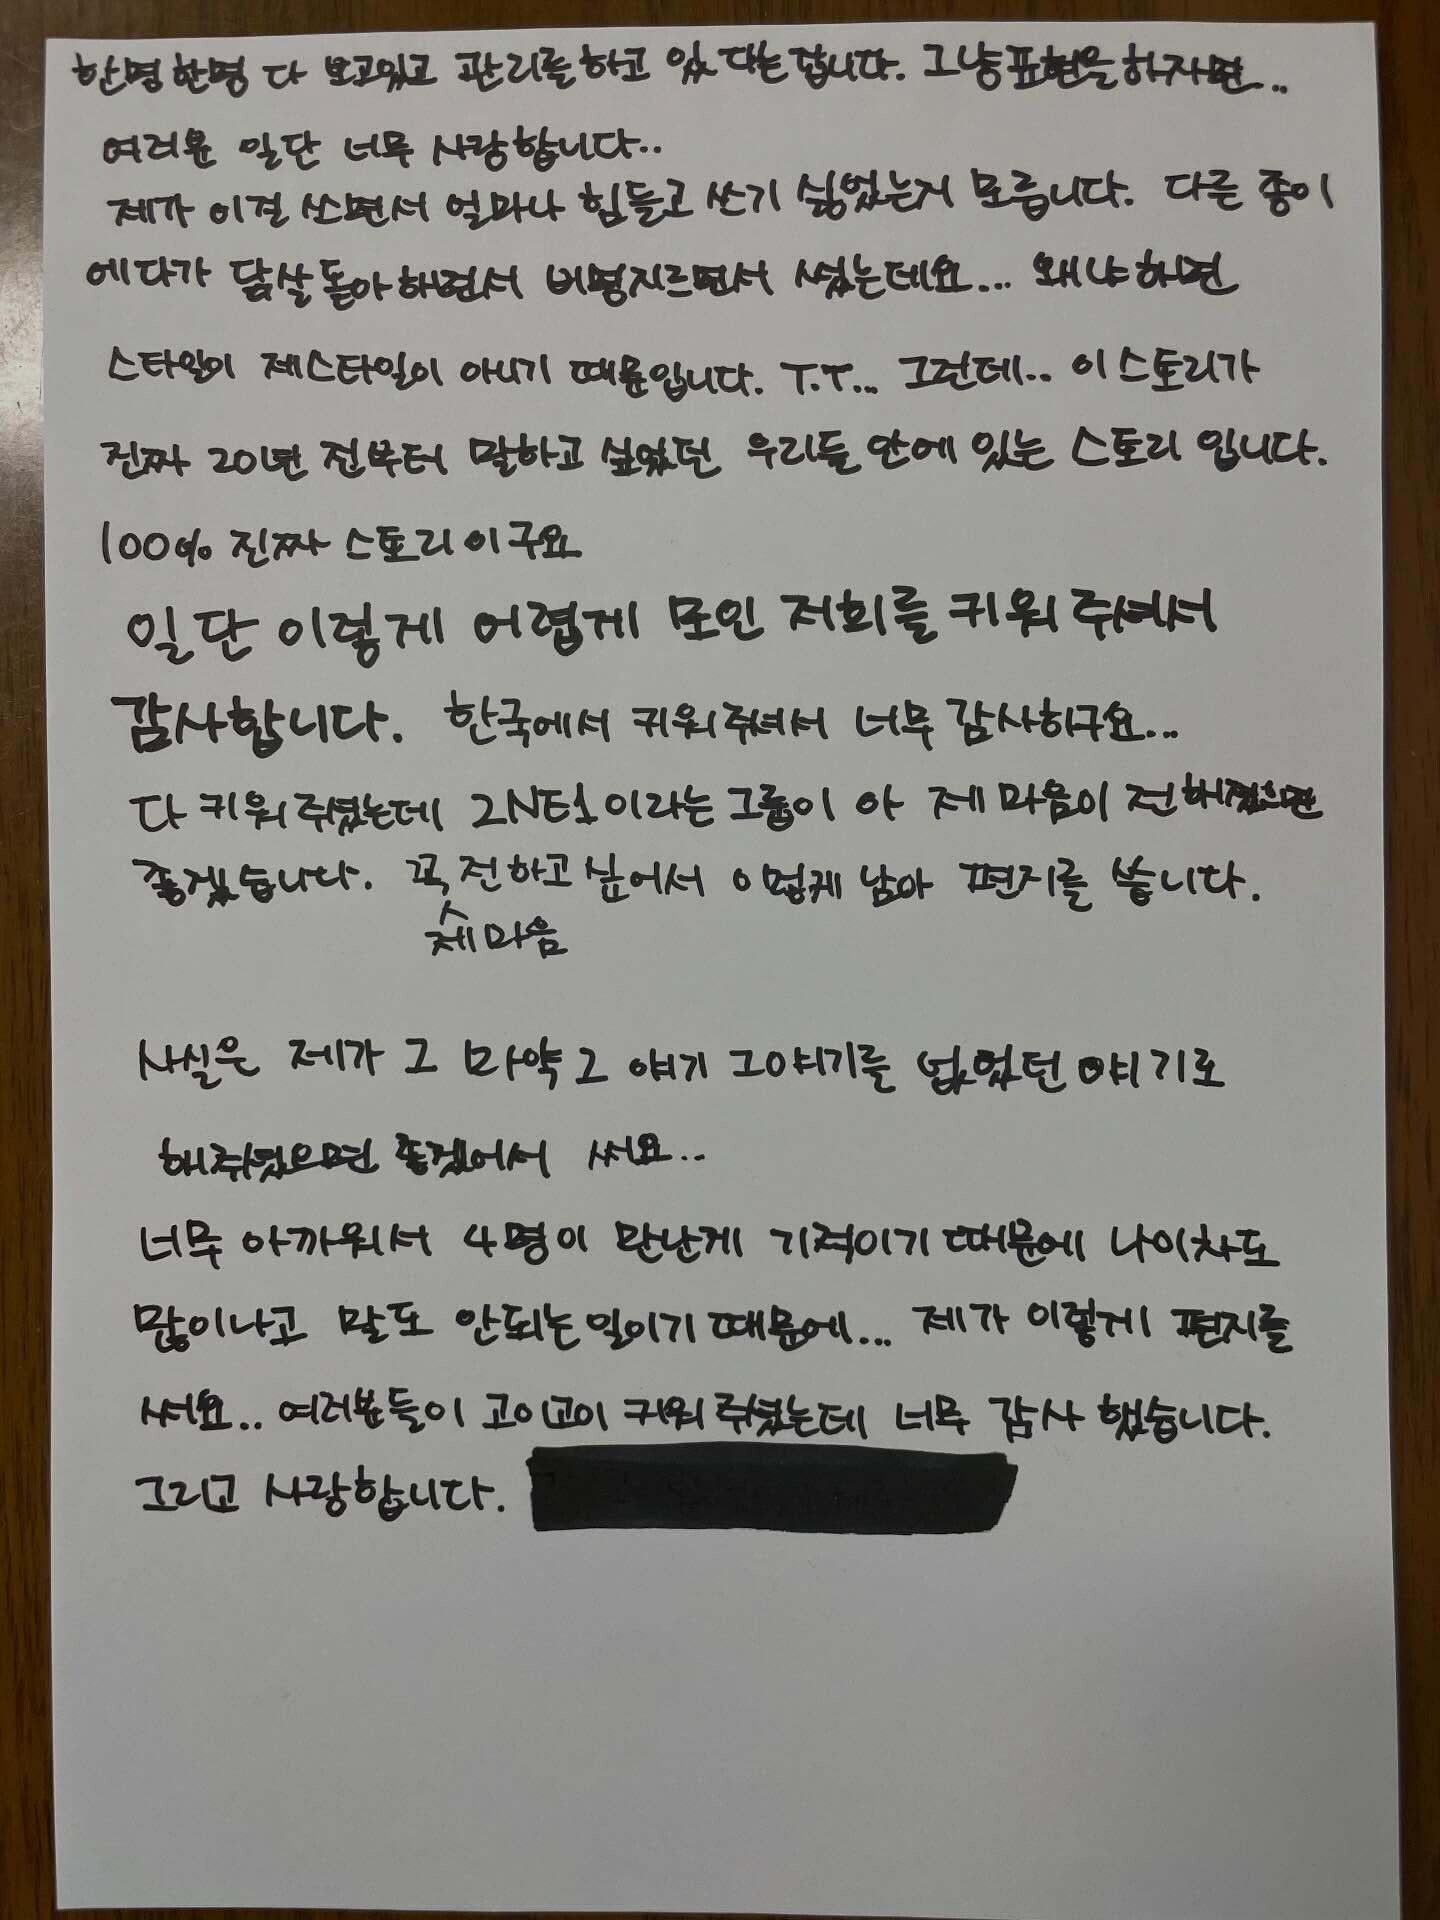 한명한명 다 보고있고 관리를하고 있다는겁니다. 그냥표현을하자면...
여러분 일단 너무 사랑합니다..
제가 이걸 쓰면서 얼마나 힘들고 쓰기 싫었는지 모릅니다. 다른 종이
에다가 닭살돋아하면서 비명지르면서 썼는데요... 왜냐하면
스타일이 제스타일이 아니기 때문입니다. T.T... 그런데.. 이스토리가
진짜 20년 전부터 말하고 싶었던 우리들 안에 있는 스토리 입니다.
100% 진짜 스토리 이구요
일단 이렇게 어렵게 모인 저희를 키워주셔서
감사합니다. 한국에서 키워주셔서 너무 감사하구요...
다 키워주셨는데 2NE1이라는그룹이 아 제 마음이 전해졌으면
좋겠습니다. 꼭 전하고싶어서 이렇게 남아 편지를 씁니다.
제마음
사실은 제가 그 마약그 얘기 그얘기를 없었던 얘기로
해주셨으면 좋겠어서 써요..
너무 아까워서 4명이 만난게 기적이기때문에 나이차도
많이나고 말도 안되는일이기때문에... 제가 이렇게 편지를
써요.. 여러분들이 고이고이 키워주셨는데 너무 감사 했습니다.
그리고 사랑합니다.